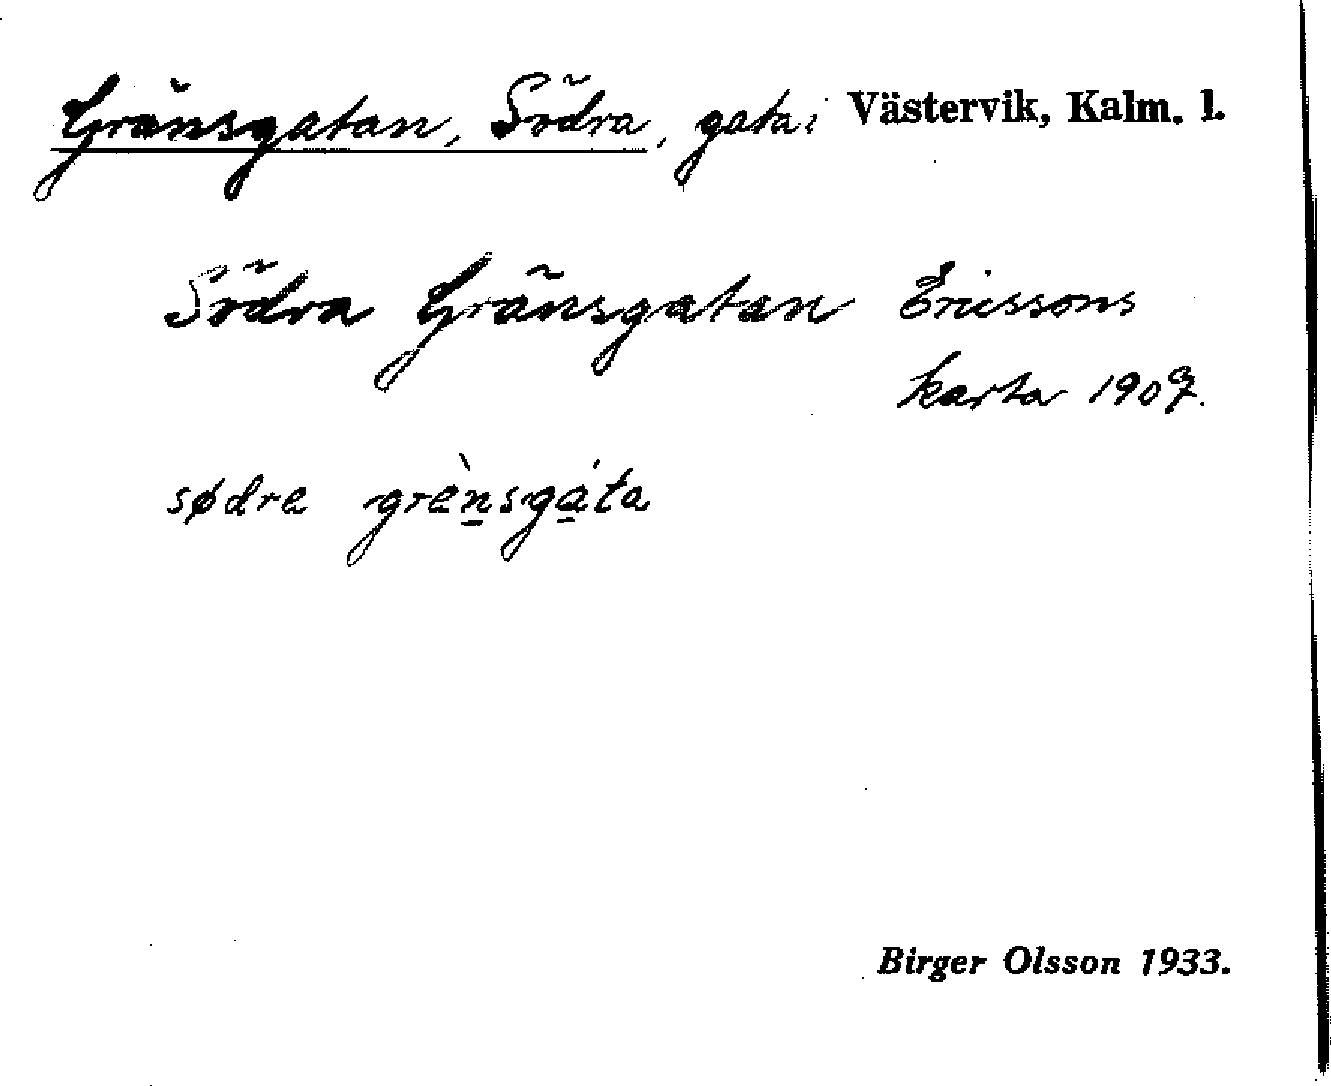 Gränsgatan, Södra, gata i Västervik, Kalm. l.
Södra Gränsgatan Ericssons
karta 1909.
sødre grènsgáta
Birger Olsson 1933.